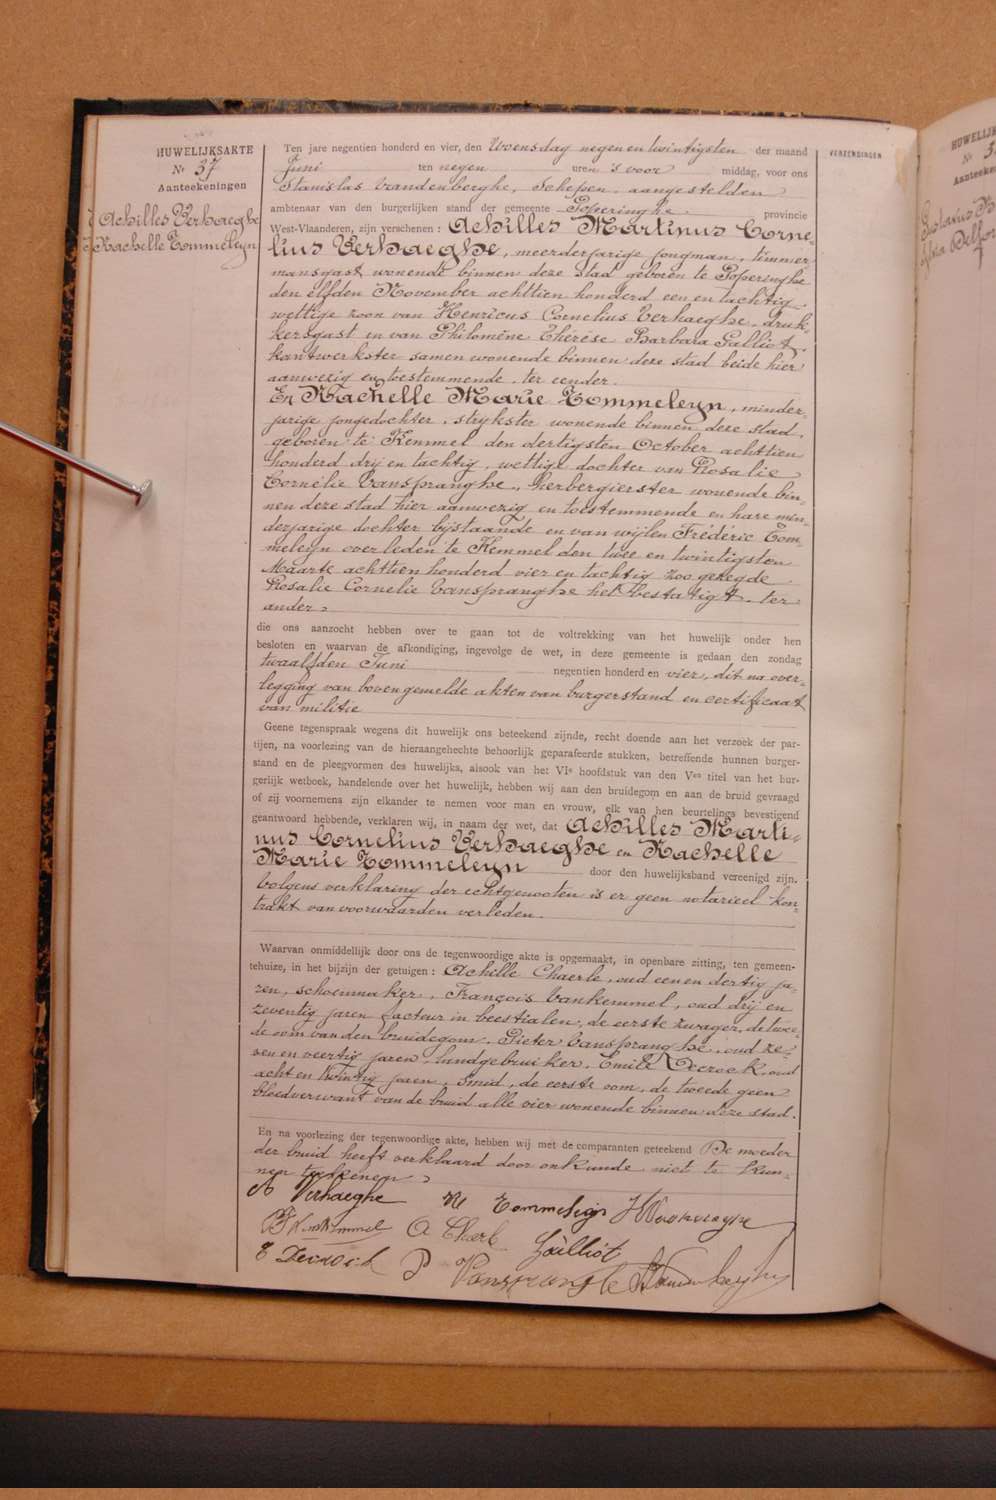 HUWELIJKSAKTE
Nr 37
Aanteekeningen
Achilles Verhaeghe
Rachelle Tommeleyn
VERZENDINGEN
Ten jare negentien honderd en vier, den Woensdag negen en twintigsten der maand
Juni ten negen uren 's voor middag, voor ons
Stanislas Vandenberghe, Schepen, aangestelden
ambtenaar van den burgerlijken stand der gemeente Poperinghe provincie
West-Vlaanderen, zijn verschenen : Achilles Martinus Corne-
lius Verhaeghe, meerderjarige jongman, timmer
mansgast wonende binnen deze stad geboren te Poperinghe
den elfden November achttien honderd een en tachtig,
wettige zoon van Henricus Cornelius Verhaeghe, druk-
kersgast en van Philomène Thérèse Barbara Galliot
kantwerkster samen wonende binnen deze stad beide hier
aanwezig en toestemmende, ter eender.
En Rachelle Marie Tommeleyn, minder-
jarige jongedochter, strykster wonende binnen deze stad,
geboren te Kemmel den dertigsten October achttien
honderd drij en tachtig, wettige dochter van Rosalie
Cornélie Vanspranghe, herbergierster wonende bin-
nen deze stad hier aanwezig en toestemmende en hare min-
derjarige dochter bijstaande en van wijlen Frédéric Tom-
meleyn overleden te Kemmel den twee en twintigsten
Maarte achttien honderd vier en tachtig zoo gezegde
Rosalie Cornelie Vanspranghe het bestatigt, ter
ander,
die ons aanzocht hebben over te gaan tot de voltrekking van het huwelijk onder hen
besloten en waarvan de afkondiging, ingevolge de wet, in deze gemeente is gedaan den zondag
twaalfden Juni negentien honderd en vier, dit na over-
legging van boven gemelde akten van burgerstand en certificaat
van militie
Geene tegenspraak wegens dit huwelijk ons beteekend zijnde, recht doende aan het verzoek der par-
tijen, na voorlezing van de hieraangehechte behoorlijk geparafeerde stukken, betreffende hunnen burger-
stand en de pleegvormen des huwelijks, alsook van het VIe hoofdstuk van den Ven titel van het bur-
gerlijk wetboek, handelende over het huwelijk, hebben wij aan den bruidegom en aan de bruid gevraagd
of zij voornemens zijn elkander te nemen voor man en vrouw, elk van hen beurtelings bevestigend
geantwoord hebbende, verklaren wij, in naam der wet, dat Achilles Marti-
nus Cornelius Verhaeghe en Rachelle
Marie Tommeleyn door den huwelijksband vereenigd zijn.
Volgens verklaring der echtgenooten is er geen notarieel kon-
trakt van voorwaarden verleden.
Waarvan onmiddellijk door ons de tegenwoordige akte is opgemaakt, in openbare zitting, ten gemeen-
tehuize, in het bijzijn der getuigen : Achille Chaerle, oud een en dertig ja-
ren, schoenmaker, François Vankemmel, oud drij en
zeventig jaren facteur in beestialen, de eerste zwager, de twee-
de oom van den bruidegom, Pieter Vanspranghe, oud ze-
ven en veertig jaren, landgebruiker, Emile Decrock, oud
acht en twintig jaren, smid, de eerste oom, de tweede geen
bloedverwant van de bruid alle vier wonende binnen deze stad.
En na voorlezing der tegenwoordige akte, hebben wij met de comparanten geteekend De moeder
der bruid heeft verklaard door onkunde niet te kun-
nen teekenen,
A Verhaeghe R Tommeleyn H Verhaeghe
F Vankemmel A Chaerle Galliot
E Decrock P Vanspranghe S Vandenberghe
HUWELIJK
Nr 3
Aanteeken